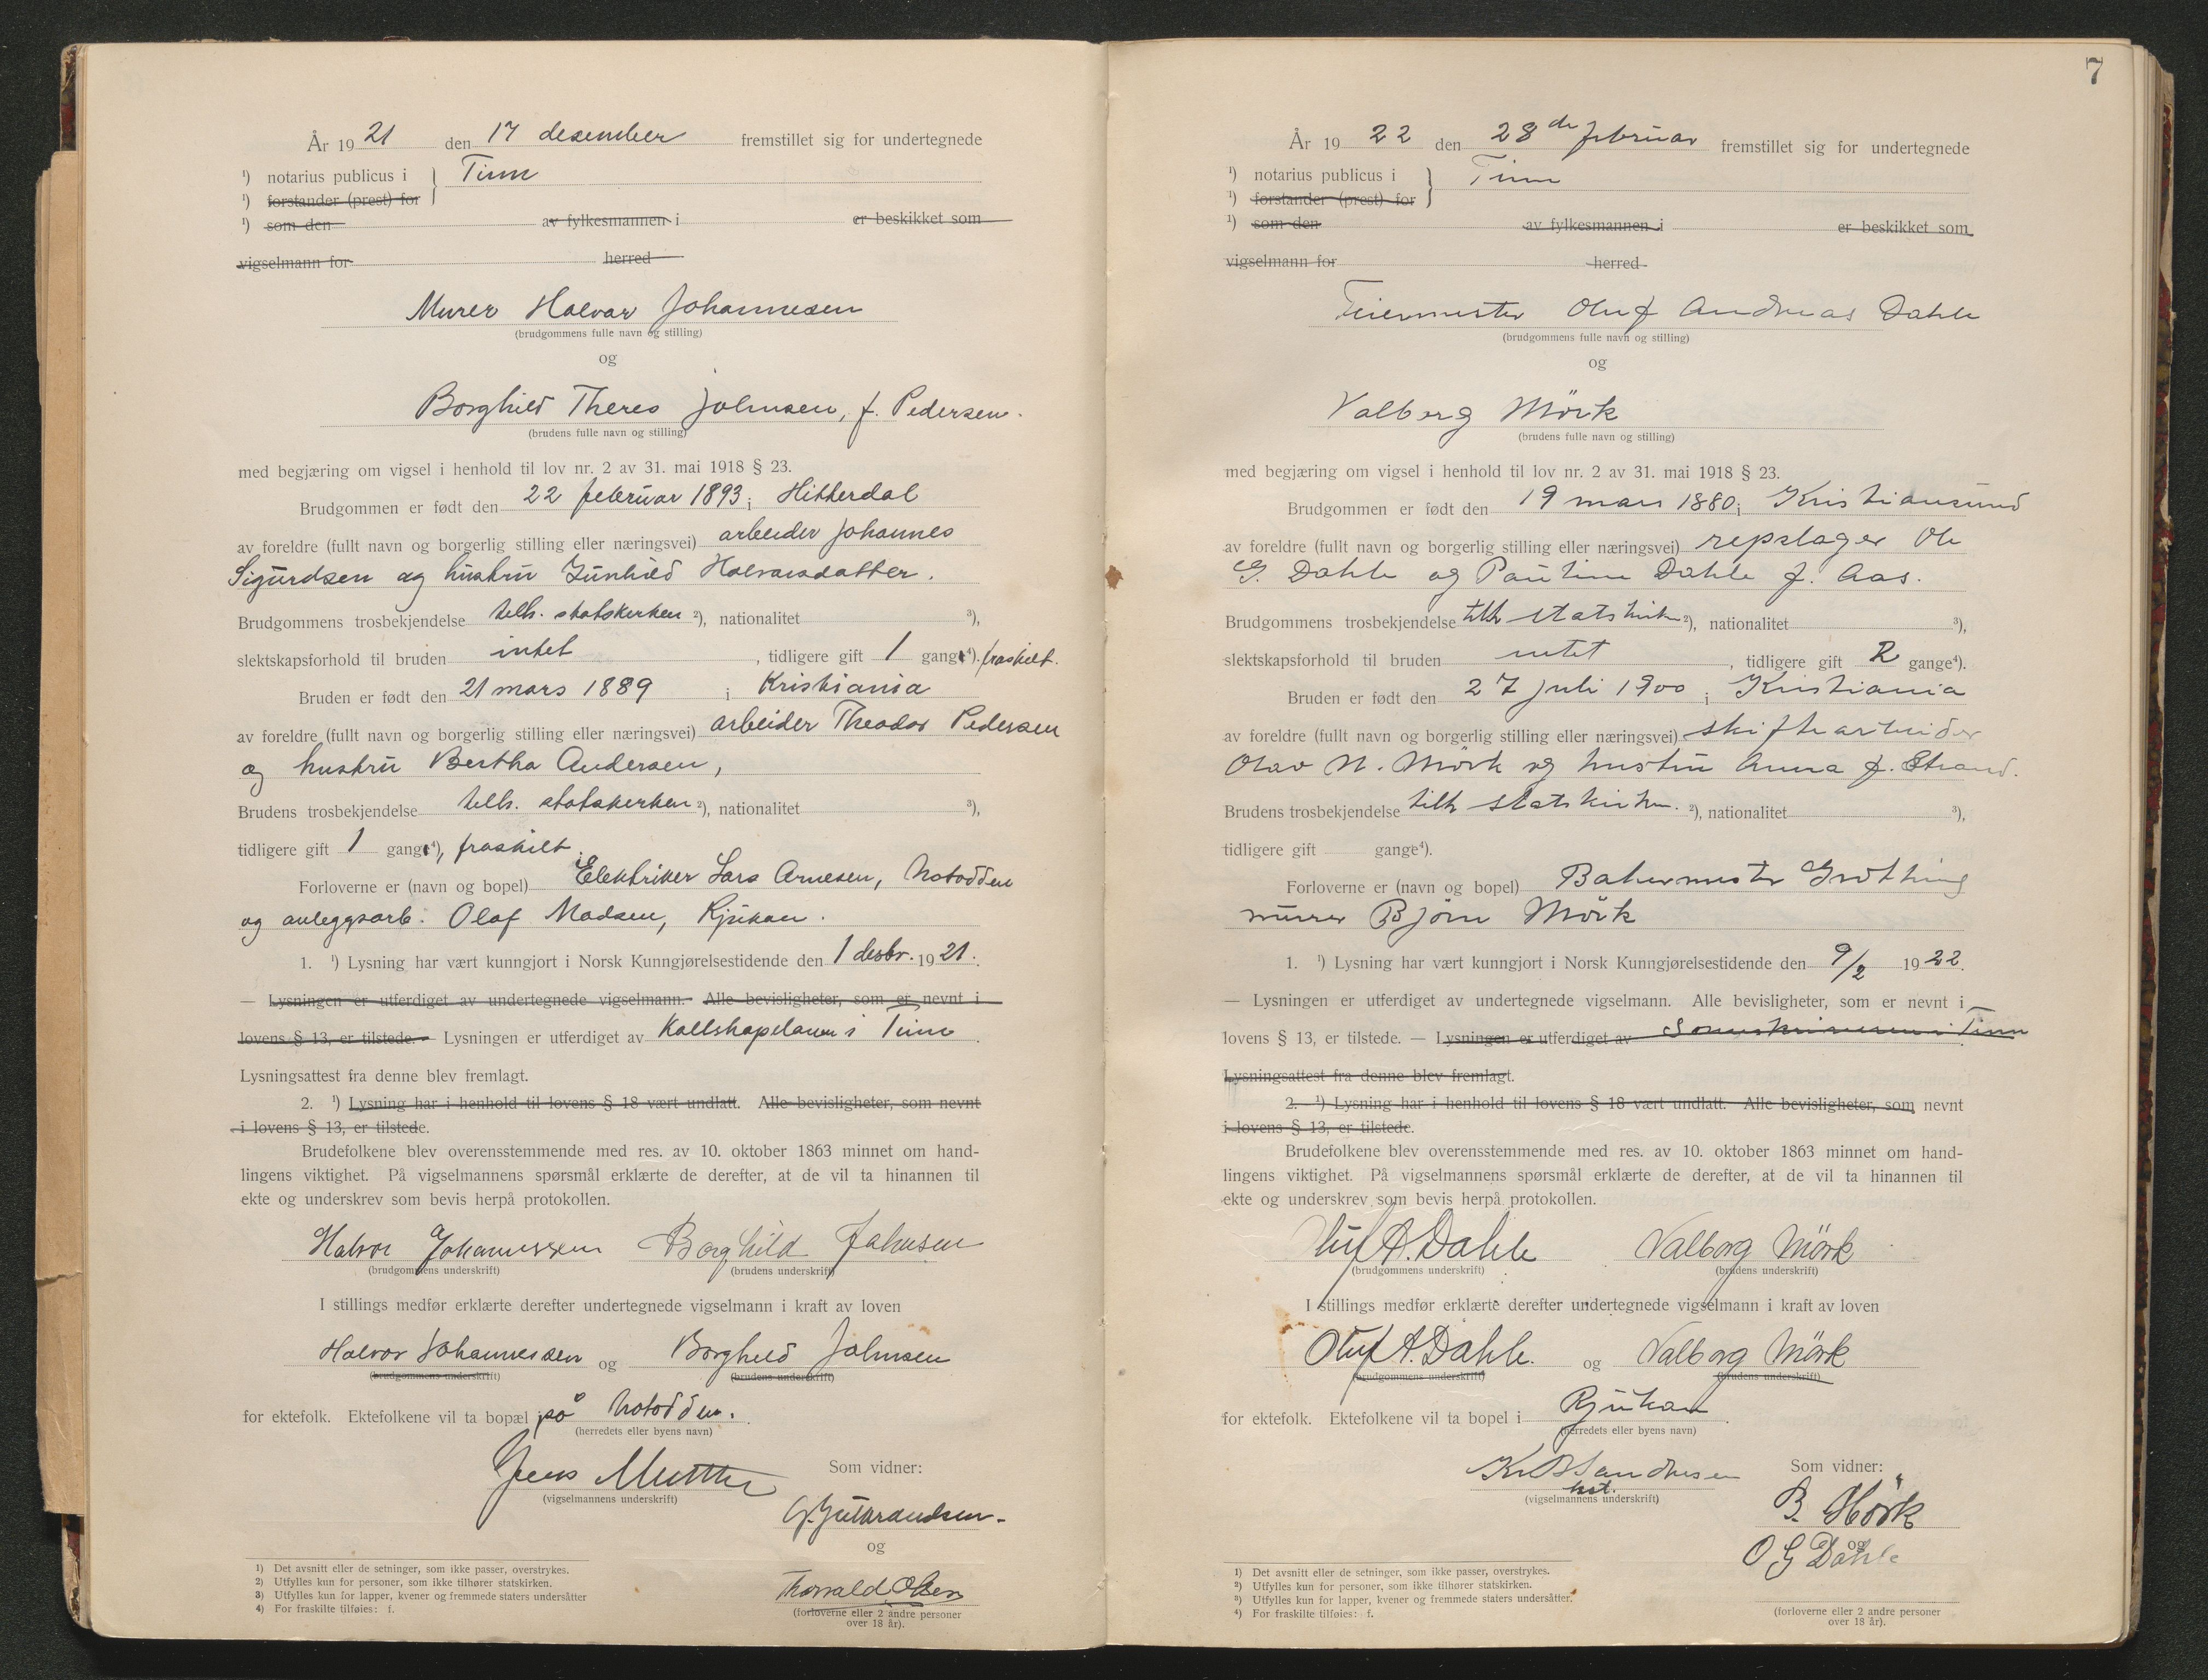 År 19 21 den 17 desember fremstillet sig for undertegnede
¹) notarius publicus i } Tinn
¹) forstander (prest) for
¹) som den av fylkesmannen i er beskikket som
vigselmann for herred
Murer Halvar Johannesen
(brudgommens fulle navn og stilling)
og
Borghild Theres Johnsen, f. Pedersen.
(brudens fulle navn og stilling)
med begjæring om vigsel i henhold til lov nr. 2 av 31. mai 1918 § 23.
Brudgommen er født den 22 februar 1893 i Hitterdal
av foreldre (fullt navn og borgerlig stilling eller næringsvei) arbeider Johannes
Sigurdsen og hustru Gunhild Halvarsdatter.
Brudgommens trosbekjendelse tilh. statskirken ²), nationalitet ³),
slektskapsforhold til bruden intet, tidligere gift 1 gang ⁴). fraskilt.
Bruden er født den 21 mars 1889 i Kristiania
av foreldre (fullt navn og borgerlig stilling eller næringsvei) arbeider Theodor Pedersen
og hustru Bertha Andersen,
Brudens trosbekjendelse tilh. statskirken ²), nationalitet ³),
tidligere gift 1 gang ⁴), fraskilt.
Forloverne er (navn og bopel) Elektriker Lars Arnesen, Notodden
og anleggsarb. Olaf Madsen, Rjukan.
1. ¹) Lysning har vært kunngjort i Norsk Kunngjørelsestidende den 1 desbr. 19 21.
— Lysningen er utferdiget av undertegnede vigselmann. Alle bevisligheter, som er nevnt i
lovens § 13, er tilstede. — Lysningen er utferdiget av Kallskapelanen i Tinn
Lysningsattest fra denne blev fremlagt.
2. ¹) Lysning har i henhold til lovens § 18 vært undlatt. Alle bevisligheter, som nevnt
i lovens § 13, er tilstede.
Brudefolkene blev overensstemmende med res. av 10. oktober 1863 minnet om hand-
lingens viktighet. På vigselmannens spørsmål erklærte de derefter, at de vil ta hinannen til
ekte og underskrev som bevis herpå protokollen.
Halvor Johannessen Borghild Johnsen
(brudgommens underskrift) (brudens underskrift)
I stillings medfør erklærte derefter undertegnede vigselmann i kraft av loven
Halvor Johannessen og Borghild Johnsen
(brudgommens underskrift) (brudens underskrift)
for ektefolk. Ektefolkene vil ta bopæl på Notodden.
(herredets eller byens navn)
Jens Som vidner:
(vigselmannens underskrift)
G. Gulbrandsen.
og
Thorvald Olsen
(forloverne eller 2 andre personer
over 18 år).
1) Det avsnitt eller de setninger, som ikke passer, overstrykes.
2) Utfylles kun for personer, som ikke tilhører statskirken.
3) Utfylles kun for lapper, kvener og fremmede staters undersåtter
4) For fraskilte tilføies: f.
7
År 19 22 den 28de februar fremstillet sig for undertegnede
¹) notarius publicus i } Tinn
¹) forstander (prest) for
¹) som den av fylkesmannen i er beskikket som
vigselmann for herred
Feiermester Oluf Andreas Dahle
(brudgommens fulle navn og stilling)
og
Valborg Mörk
(brudens fulle navn og stilling)
med begjæring om vigsel i henhold til lov nr. 2 av 31. mai 1918 § 23.
Brudgommen er født den 19 mars 1880 i Kristiansund
av foreldre (fullt navn og borgerlig stilling eller næringsvei) repslager Ole
G. Dahle og Pauline Dahle f. Aas.
Brudgommens trosbekjendelse tilh statskirken ²), nationalitet ³),
slektskapsforhold til bruden intet, tidligere gift 2 gange⁴).
Bruden er født den 27 juli 1900 i Kristiania
av foreldre (fullt navn og borgerlig stilling eller næringsvei) skiftearbeider
Olav N. Mörk og hustru Anna f. Strand.
Brudens trosbekjendelse tilh statskirken. ²), nationalitet ³),
tidligere gift — gange⁴).
Forloverne er (navn og bopel) Bakermester Grötting
murer Bjørn Mörk
1. ¹) Lysning har vært kunngjort i Norsk Kunngjørelsestidende den 9/2 19 22.
— Lysningen er utferdiget av undertegnede vigselmann. Alle bevisligheter, som er nevnt i
lovens § 13, er tilstede. — Lysningen er utferdiget av Sorenskriveren i Tinn
Lysningsattest fra denne blev fremlagt.
2. ¹) Lysning har i henhold til lovens § 18 vært undlatt. Alle bevisligheter, som nevnt
i lovens § 13, er tilstede.
Brudefolkene blev overensstemmende med res. av 10. oktober 1863 minnet om hand-
lingens viktighet. På vigselmannens spørsmål erklærte de derefter, at de vil ta hinannen til
ekte og underskrev som bevis herpå protokollen.
Oluf A. Dahle Valborg Mörk
(brudgommens underskrift) (brudens underskrift)
I stillings medfør erklærte derefter undertegnede vigselmann i kraft av loven
Oluf A. Dahle. og Valborg Mörk
(brudgommens underskrift) (brudens underskrift)
for ektefolk. Ektefolkene vil ta bopel i Rjukan
(herredets eller byens navn)
Som vidner:
(vigselmannens underskrift)
B. Mörk
og
O G Dahle
(forloverne eller 2 andre personer
over 18 år).
1) Det avsnitt eller de setninger, som ikke passer, overstrykes.
2) Utfylles kun for personer, som ikke tilhører statskirken.
3) Utfylles kun for lapper, kvener og fremmede staters undersåtter.
4) For fraskilte tilføies: f.